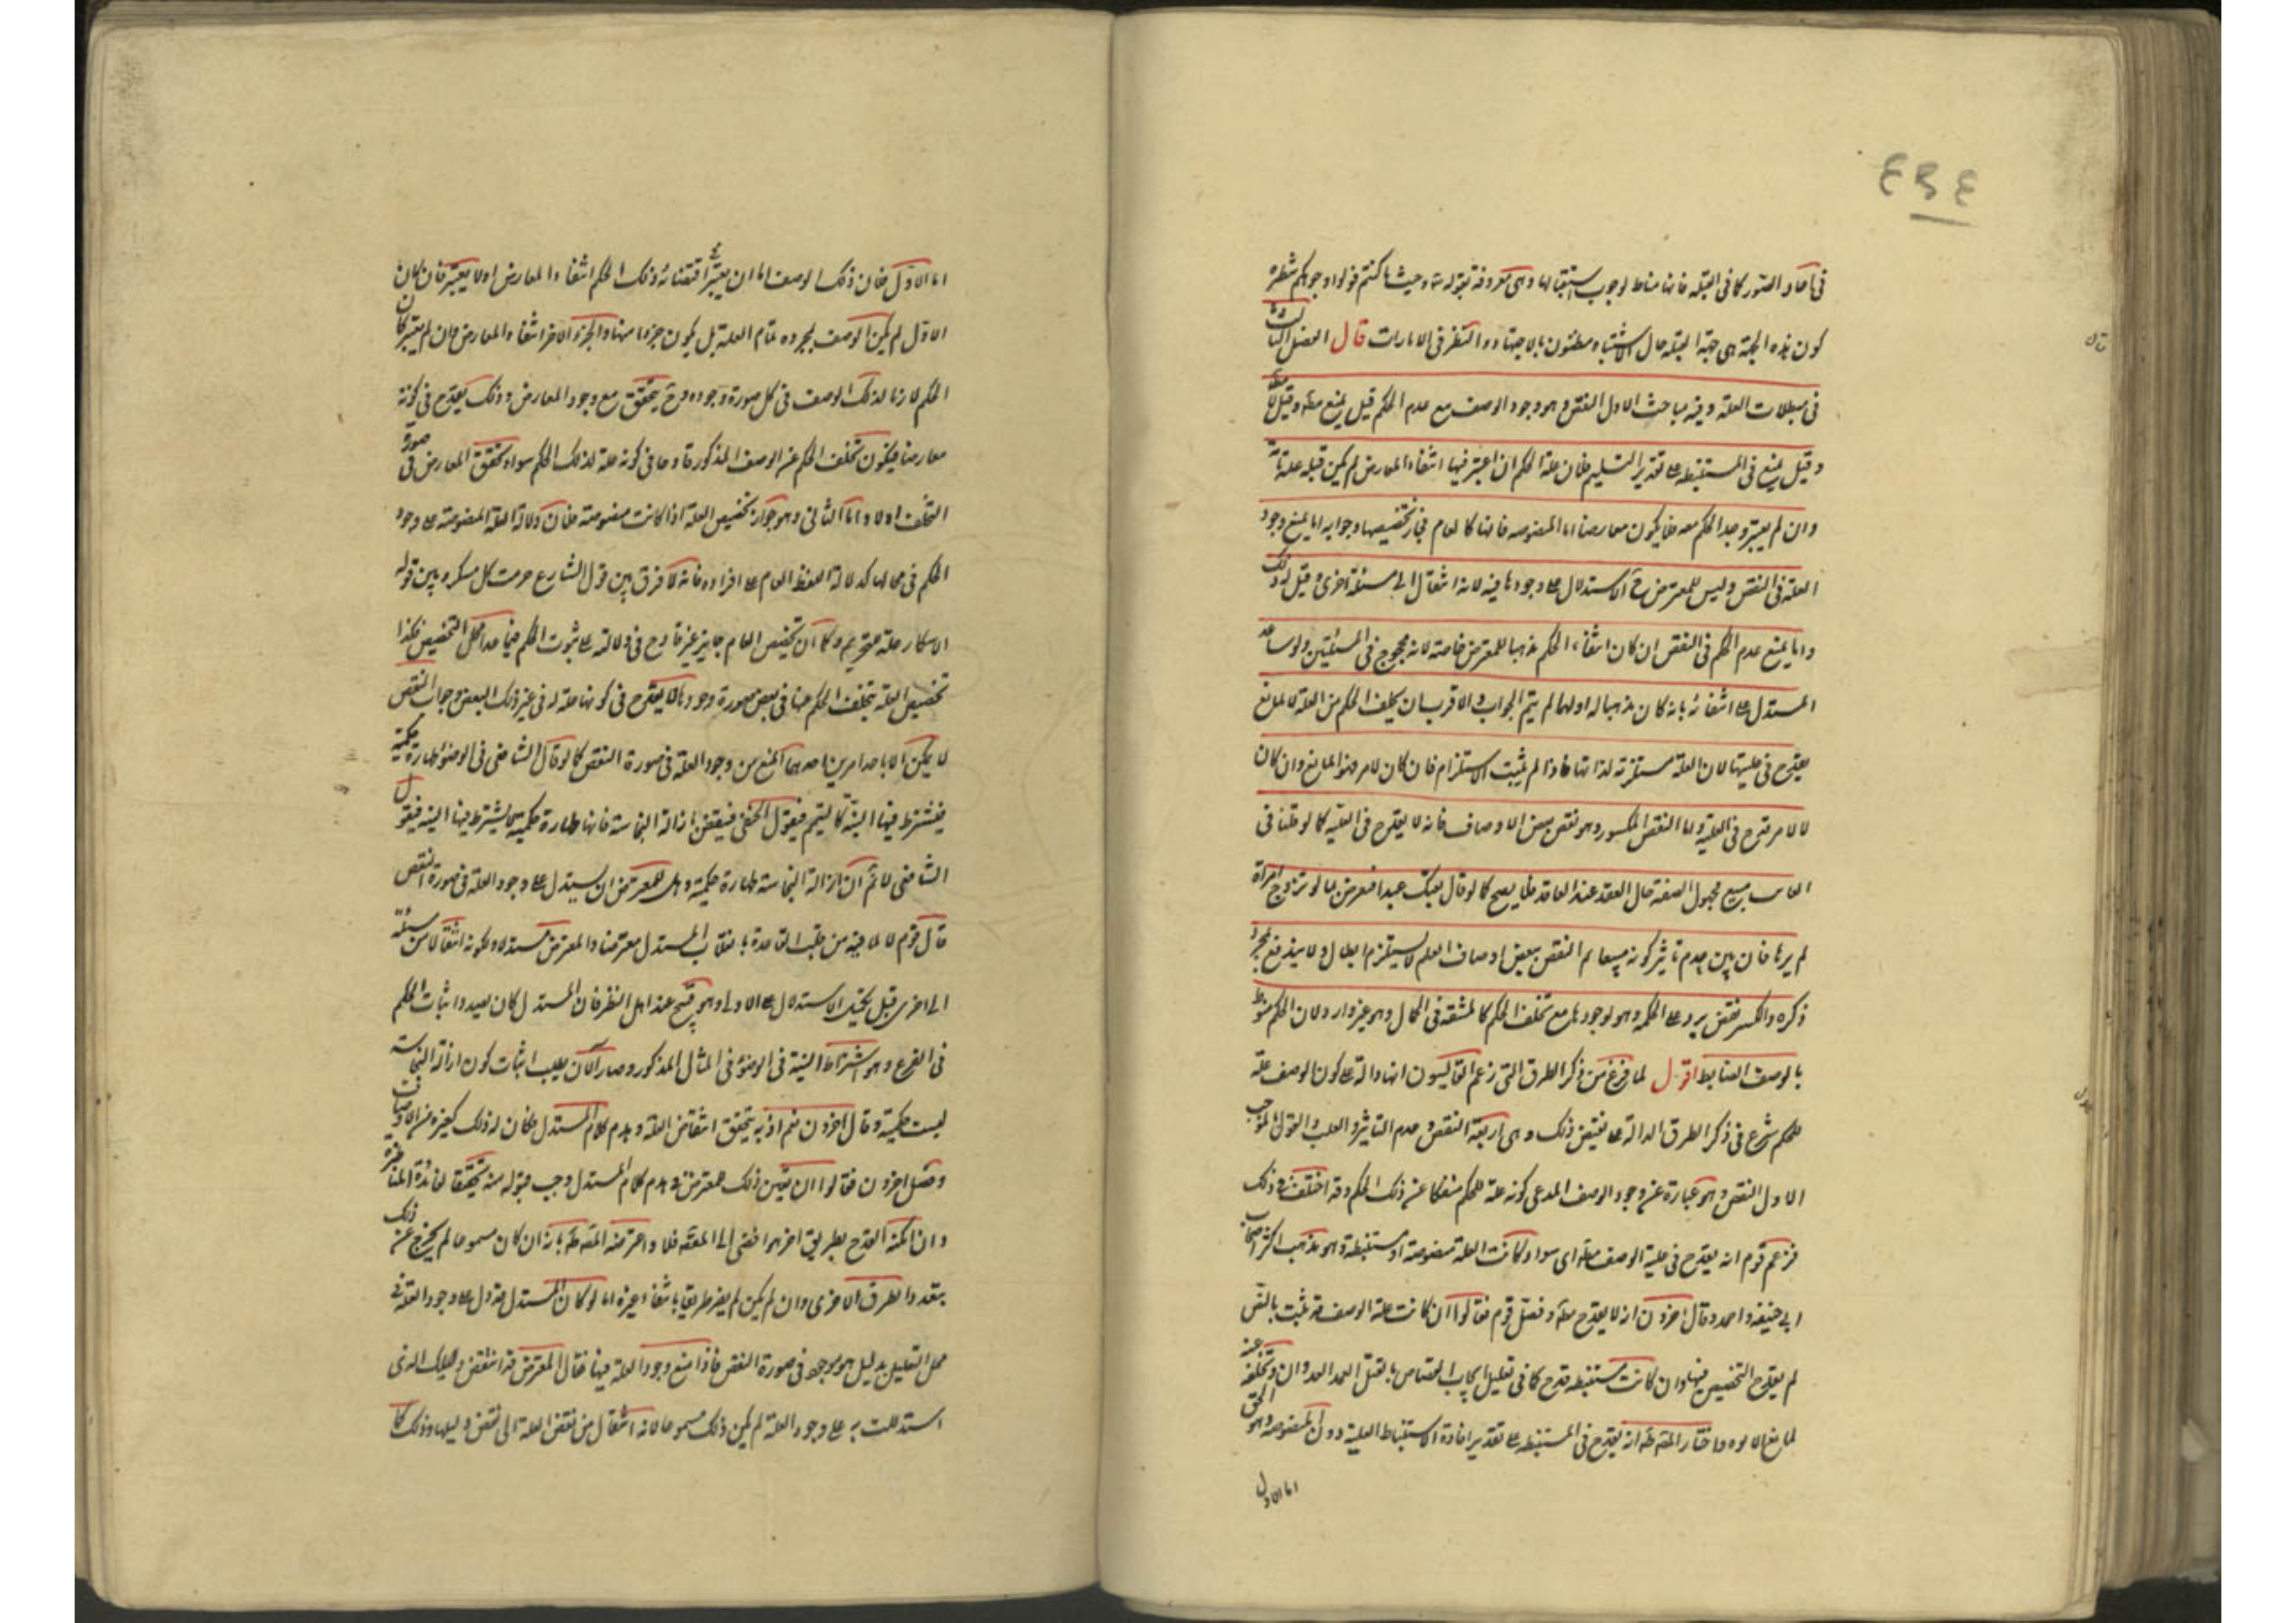 في آحاد الصور كما في القبلة فانها مناط لوجوب استقبالها وهي معروفة بقوله تع وحيث ما كنتم فولوا وجوهكم شطره
كون هذه الجهة هي جهة القبلة حال الاشتباه مظنون بالاجتهاد والنظر في الامارات قال الفصل الثالث
في مبطلات العلة وفيه مباحث الاول النقض وهو وجود الوصف مع عدم الحكم قيل يمنع مطلقا وقيل لا
وقيل يمنع في المستنبطه على تقدير التسليم فان علة الحكم ان اعتبر فيها انتفاء المعارض لم يكن قبله علة تامة
وان لم يعتبر وجد الحكم معه فلا يكون معارضا اما المنصوصه فانها كالعام فجاز تخصيصها وجوابه اما بمنع وجود
العلة في النقض وليس للمعترض ح الاستدلال على وجودها فيه لانه انتقال الى مسئلة اخرى وقيل له ذلك
واما بمنع عدم الحكم في النقض ان كان انتفاء الحكم مذهبا للمعترض خاصة لانه محجوج في المسئلتين ولو ساعد
المستدل على انتفائه بانه كان مذهبا له اولهما لم يتم الجواب والاقرب ان تخلف الحكم من العلة لا لمانع
يقدح في عليتها لان العلة مستلزمة لذاتها فاذا لم يثبت الاستلزام فان كان لامر فهو المانع وان كان
لا لامر قدح في العلية واما النقض المكسور وهو نقض بعض الاوصاف فانه لا يقدح في العلية كما لو قلنا في
الغائب مبيع مجهول الصفة حال العقد عند العاقد فلا يصح كما لو قال بعتك عبدا فعرض بما لو تزوج امراة
لم يرها فان بين عدم تاثير كونه مبيعا لم النقض ببعض اوصاف العلة لا يستلزم ابطال ولا يندفع بمجرد
ذكره والكسر نقض يرد على الحكمة وهو وجودها مع تخلف الحكم كالمشقة في الحمال وهو غير وارد لان الحكم منوط
بالوصف الضابط اقول لما فرغ من ذكر الطرق التي زعم القائسون انها دالة على كون الوصف علة
للحكم شرع في ذكر الطرق الدالة على نقيض ذلك وهي اربعة النقض وعدم التاثير والقلب والقول بالموجب
الاول النقض وهو عبارة عن وجود الوصف المدعى كونه علة للحكم منفكا عن ذلك الحكم وقد اختلف في ذلك
فزعم قوم انه يقدح في علية الوصف مطلقا اي سواء كانت العلة منصوصة او مستنبطة وهو مذهب اكثر اصحاب
ابي حنيفة واحمد وقال اخرون انه لا يقدح مطلقا وفصل قوم فقالوا ان كانت علة الوصف قد ثبتت بالنص
لم يقدح التخصيص فيها وان كانت مستنبطه قدح كما في تعليل ايجاب القصاص بالقتل العمد العدوان وتخلفه عنه
لمانع الابوه واختار المصنف انه يقدح في المستنبطه على تقدير افادة الاستنباط العلية دون المنصوصه وهو الحق
اما الاول
اما الاول فلان ذلك الوصف اما ان يعتبر في اقتضائه ذلك الحكم انتفاء المعارض اولا يعتبر فان كان
الاول لم يكن الوصف بمجرده تمام العلة بل يكون جزءا منها والجزء الاخر انتفاء المعارض وان لم يعتبر كان
الحكم لازما لذلك الوصف في كل صورة وجوده وح يتحقق مع وجود المعارض وذلك يقدح في كونه
معارضا فيكون تخلف الحكم عن الوصف المذكور قادحا في كونه علة لذلك الحكم سواء تحقق المعارض في صورة
التخلف اولا واما الثاني وهو جواز تخصيص العلة اذا كانت منصوصة فلان دلالة العلة المنصوصة على وجود
الحكم في محالها كدلالة اللفظ العام على افراده فانه لا فرق بين قول الشارع حرمت كل مسكر وبين قوله
الاسكار علة للتحريم وكما ان تخصيص العام جايز غير قادح في دلالته على ثبوت الحكم فيما عدا محل التخصيص فكذا
تخصيص العلة بتخلف الحكم عنها في بعض صورة وجودها لا يقدح في كونها علة له في غير ذلك البعض وجواب النقض
لا يمكن الا باحد امرين احدهما المنع من وجود العلة في صورة النقض كما لو قال الشافعي في الوضوء طهارة حكمية
فيشترط فيها النية كالتيمم فيقول الحنفي فينقض ازالة النجاسة فانها طهارة حكمية لا يشترط فيها النية فيقول
الشافعي لا نم ان ازالة النجاسة طهارة حكمية وهل للمعترض ان يستدل على وجود العلة في صورة النقض
قال قوم لا لما فيه من قلب القاعدة بانقلاب المستدل معترضا والمعترض مستدلا ولكونه انتقالا من مسئلة
الى اخرى قبل تحقيق الاستدلال على الاولى وهو قبيح عند اهل النظر فان المستدل كان بصدد اثبات الحكم
في الفرع وهو اشتراط النية في الوضوء في المثال المذكور وصار الان يطلب اثبات كون ازالة النجاسة
ليست حكمية وقال اخرون نعم اذ به يتحقق انتقاض العلة وهدم كلام المستدل فكان له ذلك كغيره من الاوصاف
وفصل اخرون فقالوا ان تعين ذلك للمعترض في هدم كلام المستدل وجب قبوله منه تحقيقا لفائدة المناظرة
وان امكنه القدح بطريق اخر هو افضى الى المقصود فلا واعترضه المصنف بانه ان كان مسموعا لم يخرج عن ذلك
بتعدد الطرق الاخرى وان لم يكن لم يصر طريقا بانتفاء غيره اما لو كان المستدل قد دل على وجود العلة في
محل التعليل بدليل هو موجود في صورة النقض فاذا منع وجود العلة فيها فقال المعترض قد انتقض دليلك الذي
استدللت به على وجود العلة لم يكن ذلك مسموعا لانه انتقال من نقض العلة الى نقض دليلها وذلك كما